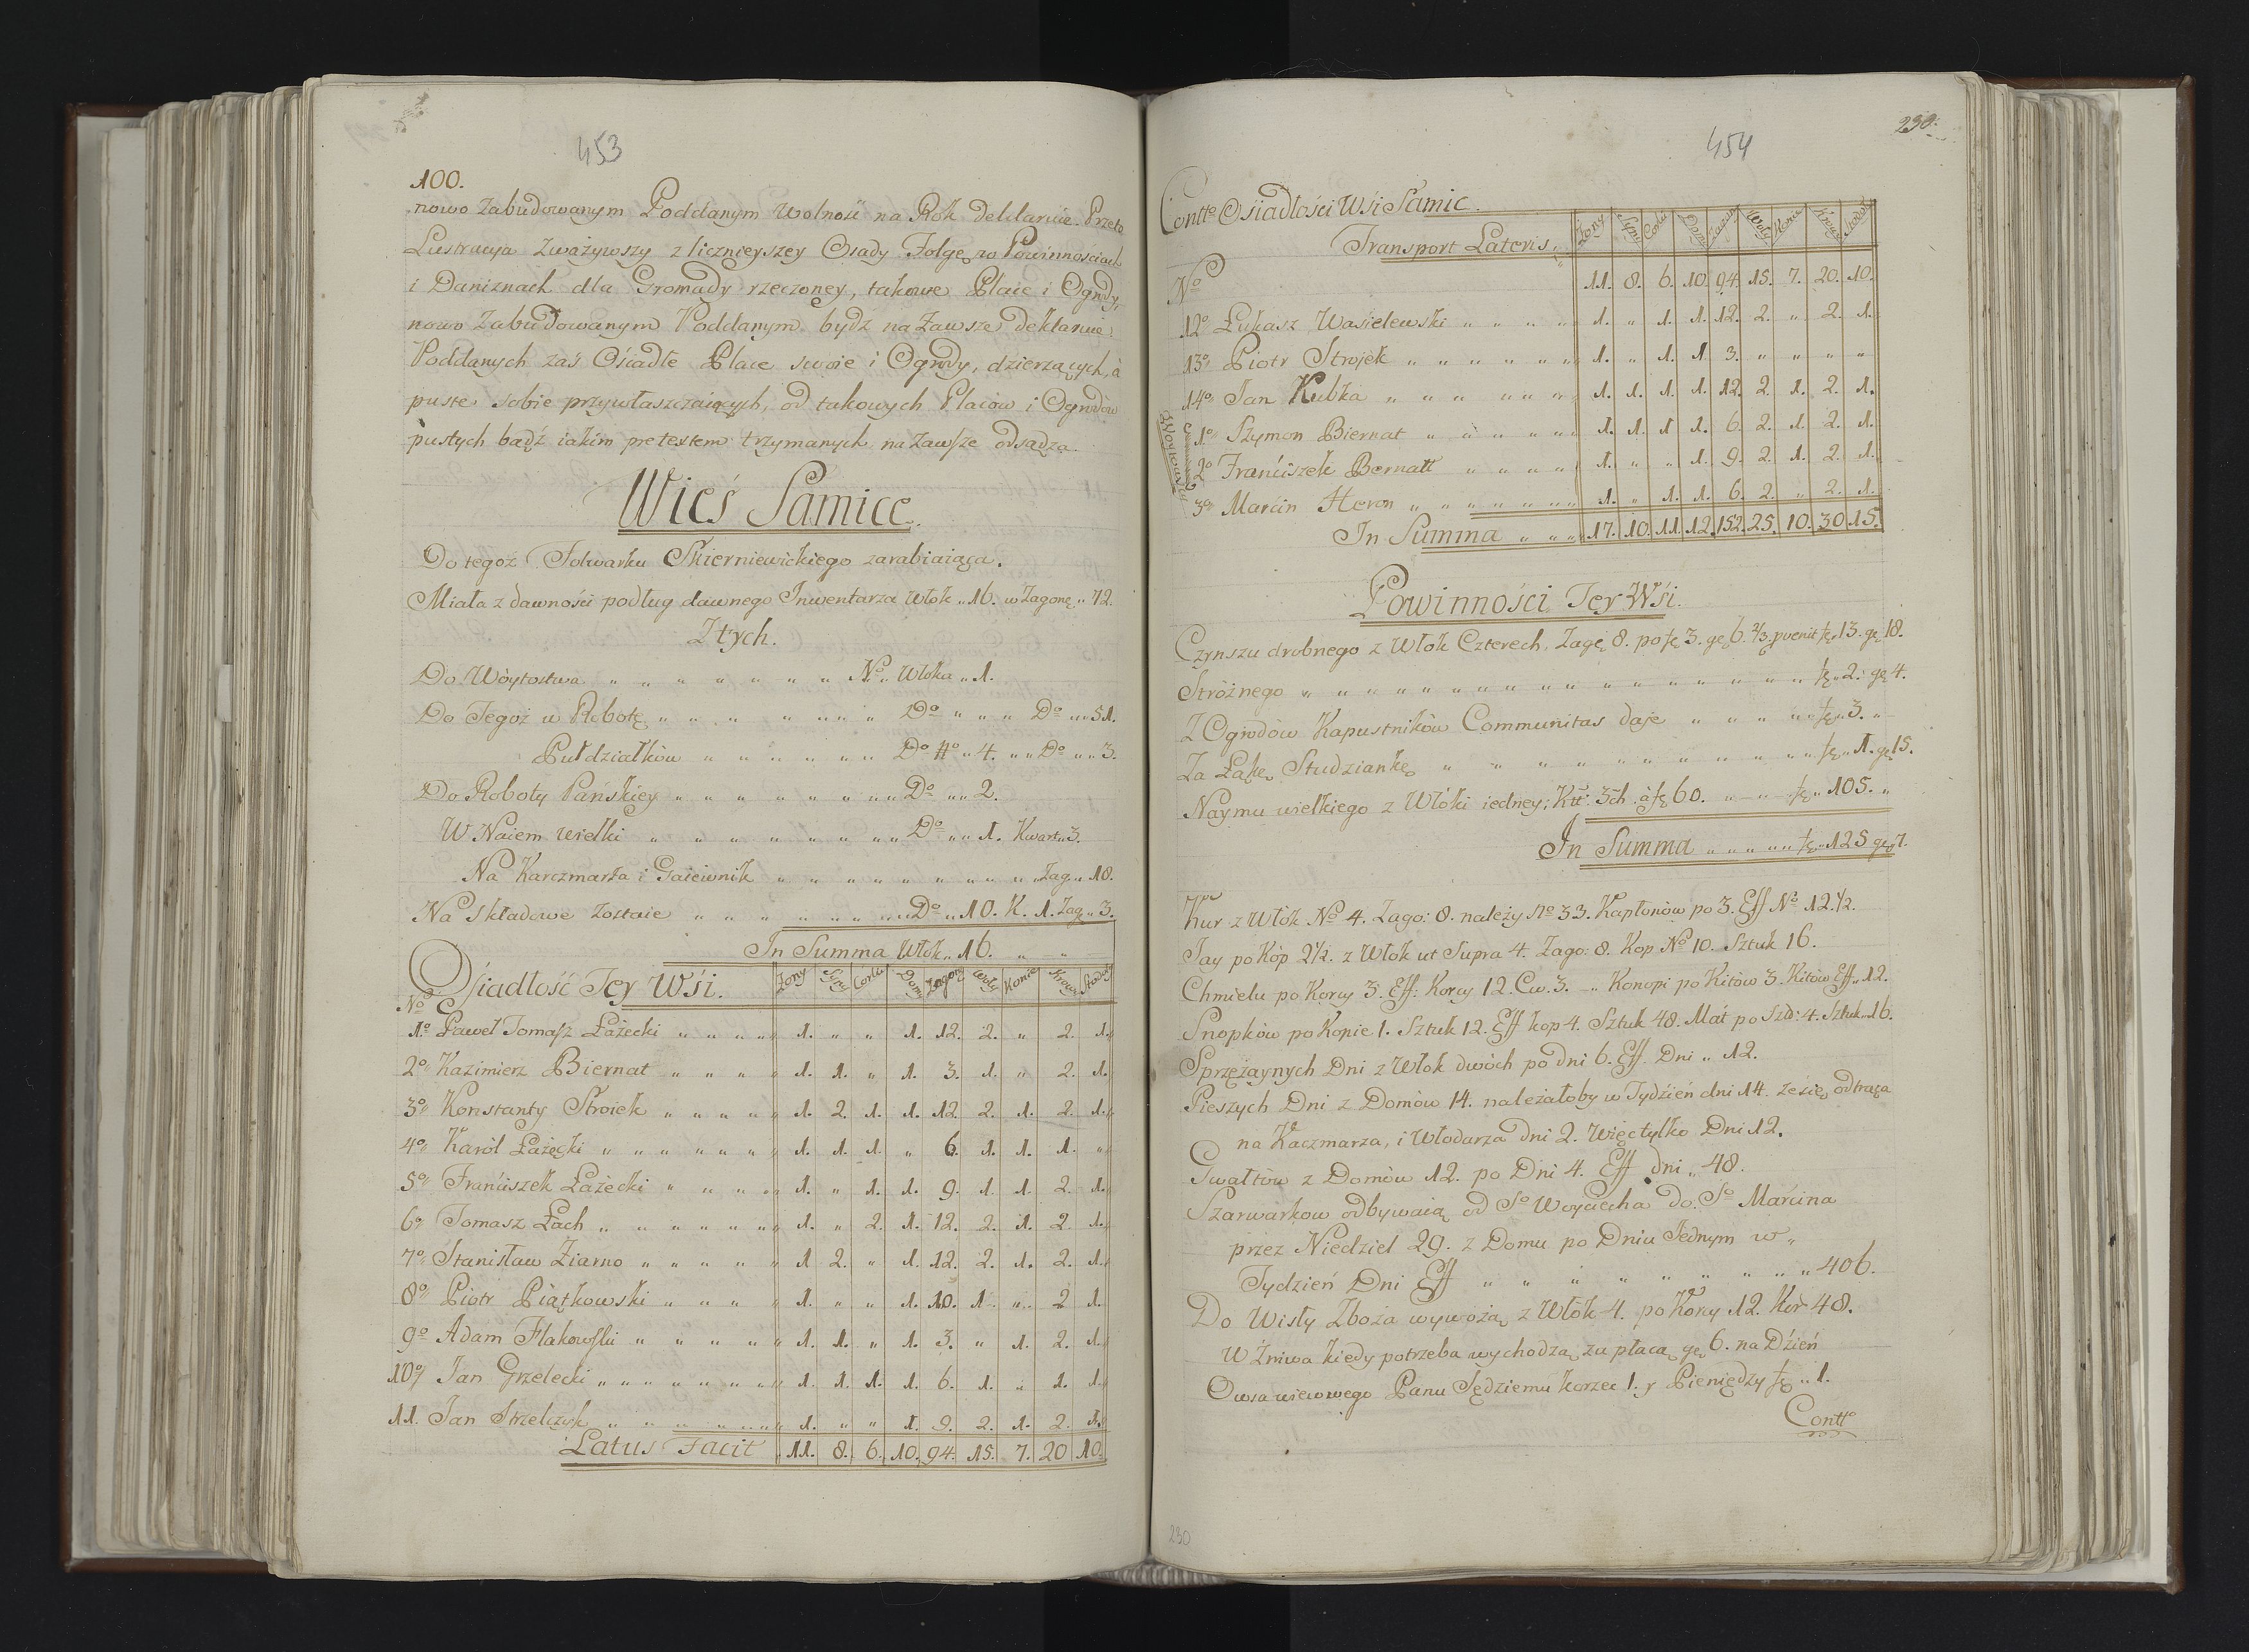 453
100.
nowo zabudowanym Poddanym wolność na Rok deklaruie. Przeto
Lustracyia zważywszy z licznieyszey Osady Folgę w Powinnościach
i Daniznach dla Gromady rzeczoney, takowe Place i Ogrody,
nowo zabudowanym Poddanym bydź na zawsze deklaruie:
Poddanych zaś Osiadłe Place swoie i Ogrody, dzierzących, à
puste sobie przywłaszczaiących, od takowych Placów i Ogrodów
pustych bądź iakim pretextem trzymanych na zawsze odsądza.
Wieś Samice.
Do tegoż Folwarku Skierniewickiego zarabiaiąca.
Miała z dawności podług dawnego Inwentarza Włók „ 16. w Zagonę „ 12.
Z tych.
Do Wóytostwa „ „ „ „ „ „ „ „ No „ Włoka „ 1.
Do Tegoż w Robotę „ „ „ „ „ „ „ Do „ „ „ Do „ „ 51.
Pułdziałków „ „ „ „ „ „ Do No „ 4. „ „ Do „ „ 3.
Do Roboty Pańskiey „ „ „ „ „ „ „ „ „ Do „ „ 2.
W Naiem wielki „ „ „ „ „ „ „ „ „ Do „ „ 1. Kwart „ 3.
Na Karczmarza i Gaiewnik „ „ „ „ „ „ „ „ „ „ Zag „ 18.
Na Składowe zostaie „ „ „ „ „ „ „ „ Do „ 10. K. 1. Zag „ 3.
In Summa Włók „ 16. „ „
Osiadłość Tey Wsi. Żony Syny Corki Domy Zagony Woły Konie Krowy Stodoły
No
1o Paweł Tomasz Łażecki „ „ „ „ „ 1. „ „ 1. 12. 2. „ 2. 1.
2o Kazimierz Biernat „ „ „ „ 1. 1. „ 1. 3. 1. „ 2. 1.
3o Konstanty Stroiek „ „ „ „ „ 1. 2. 1. 1. 12. 2. 1. 2. 1.
4o Karól Łażęcki „ „ „ „ „ „ „ 1. 1. 1. „ 6. 1. 1. 1. „
5o Franciszek Łażecki „ „ „ „ „ 1. „ 1. 1. 9. 1. 1. 2. 1.
6o Tomasz Łach „ „ „ „ „ „ „ 1. „ 2. 1. 12. 2. 1. 2. 1.
7o Stanisław Ziarno „ „ „ „ „ 1 2. „ 1. 12. 2. 1. 2. 1.
8o Piotr Piątkowski „ „ „ „ 1. „ „ 1. 10. 1. „ 2 1.
9o Adam Flakowski „ „ „ „ „ 1. 1. „ 1. 3. „ 1. 2. 1.
10o Jan Grzelecki „ „ „ „ „ „ „ „ 1. 1. 1. 1. 6. 1. „ 1. 1.
11. Jan Strzelczyk „ „ „ „ „ „ „ 1. „ „ 1. 9. 2. 1. 2. 1.
Latus Facit 11. 8. 6. 10. 94. 15. 7. 20 10.
454
230.
Contto Osiadłości Wsi Samic.
Transport Lateris. Żony Syny Corki Domy Zagony Woły Konie Krowy Stodoły
No 11. 8. 6. 10. 94. 15. 7. 20. 10.
12o Łukasz Wasielewski „ „ „ „ 1. „ 1. 1. 12. 2. „ 2. 1.
13o Piotr Strojek „ „ „ „ „ „ „ 1. „ 1. 1. 3. „ „ „ „
14o Jan Kubka „ „ „ „ „ „ 1. 1. 1. 1. 12. 2. 1. 2. 1.
1o Szymon Biernat „ „ „ „ „ „ 1. 1. 1 1. 6. 2. 1. 2. 1.
2o Franciszek Bernatt „ „ „ „ 1. „ „ 1. 9. 2. 1. 2. 1.
3o Marcin Heron „ „ „ „ „ „ „ 1. „ 1. 1. 6. 2. „ 2. 1.
In Summa „ „ „ 17. 10. 11. 12. 152. 25. 10. 30. 15.
Powinności Tey Wsi.
Czynszu drobnego z Włók Czterech, Zagę 8. po fę 3. gę 6. 2/3. pvenit fę 13. gę 18.
Stróżnego „ „ „ „ „ „ „ „ „ „ „ „ „ „ „ „ fę „ 2. gę 4.
Z Ogrodów Kapustników Communitas daje „ „ „ „ fę „ 3. „
Za Łąkę Studziankę „ „ „ „ „ „ „ „ „ „ „ fę „ 1. gę 15.
Naymu wielkiego z Włóki iedney; Ktt 3ch. à fę 60. „ „ fę „ 105. „
In Summa „ „ „ „ „ fę „ 125 gę 7.
Kur z Włók No 4. Zago: 8. należy No 33. Kapłonów po 3. Eff No 12. 1/2.
Jay po Kóp 2 1/2. z Włok ut Supra 4. Zago: 8. Kop No 10. Sztuk 16.
Chmielu po Korcy 3. Eff: Korcy 12. Cw. 3. „ Konopi po Kitów 3. Kitów Eff „ 12.
Snopków po Kopie 1. Sztuk 12. Eff kop 4. Sztuk 48. Mát po Szd: 4. Sztuk „ 16.
Sprzężaynych Dni z Włok dwóch po dni 6. Eff. Dni „ 12.
Pieszych Dni z Domów 14. należałoby w Tydzień dni 14. że się odtrąca
na Kaczmarza, i Włodarza dni 2. Więc tylko Dni 12.
Gwałtów z Domów 12. po Dni 4. Eff dni „ 48.
Szarwarkow odbywaią od So Woyciecha do So Marcina
przez Niedziel 29. z Domu po Dniu Jednym w „
Tydzień Dni Eff „ „ „ „ „ „ „ „ „ 406.
Do Wisły Zboża wywożą z Włók 4. po Korcy 12. Kor 48.
W Żniwa kiedy potrzeba wychodzą, zu płacą gę 6. na Dzień
Owsa wiewowego Panu Sędziemu korzec 1. y Pieniędzy fę „ 1.
Contto
230